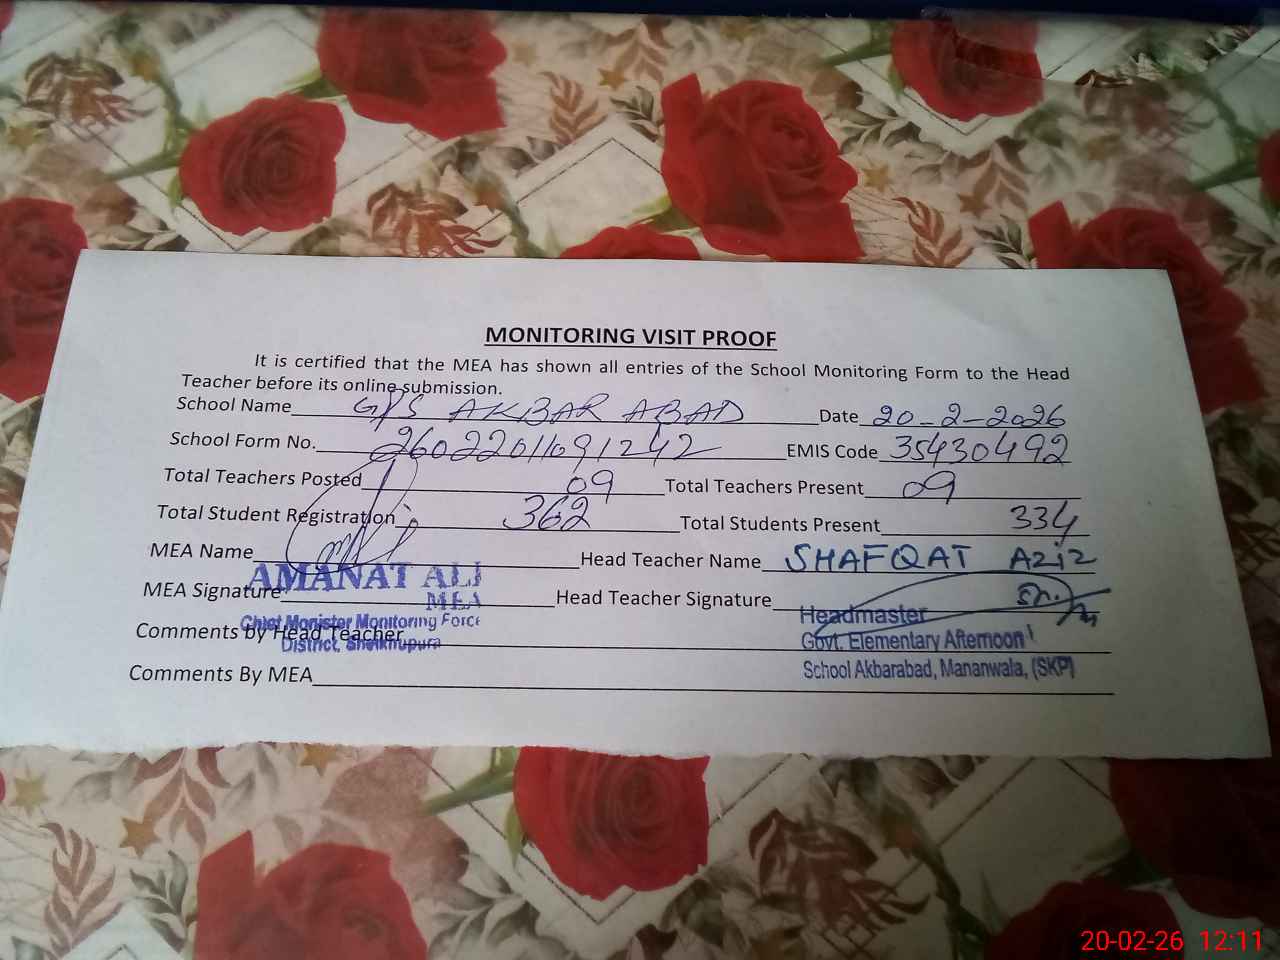 MONITORING VISIT PROOF
It is certified that the MEA has shown all entries of the School Monitoring Form to the Head
Teacher before its online submission.
School Name GPS AKBAR ABAD Date 20-2-2026
School Form No. 26022011091242 EMIS Code 35430492
Total Teachers Posted 09 Total Teachers Present 09
Total Student Registration 362 Total Students Present 334
MEA Name Head Teacher Name SHAFQAT AZIZ
AMANAT ALI
MEA
MEA Signature Head Teacher Signature
Chief Monister Monitoring Force
District, Sheikhupura
Headmaster
Govt. Elementary Afternoon
School Akbarabad, Mananwala, (SKP)
Comments by Head Teacher
Comments By MEA
20-02-26 12:11